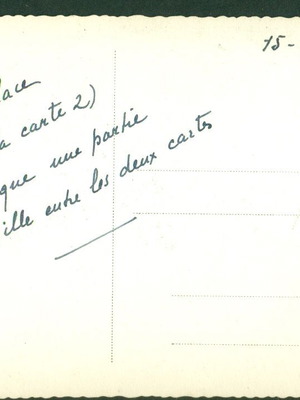 15-
lace
a carte 2)
que une partie
ille entre les deux cartes